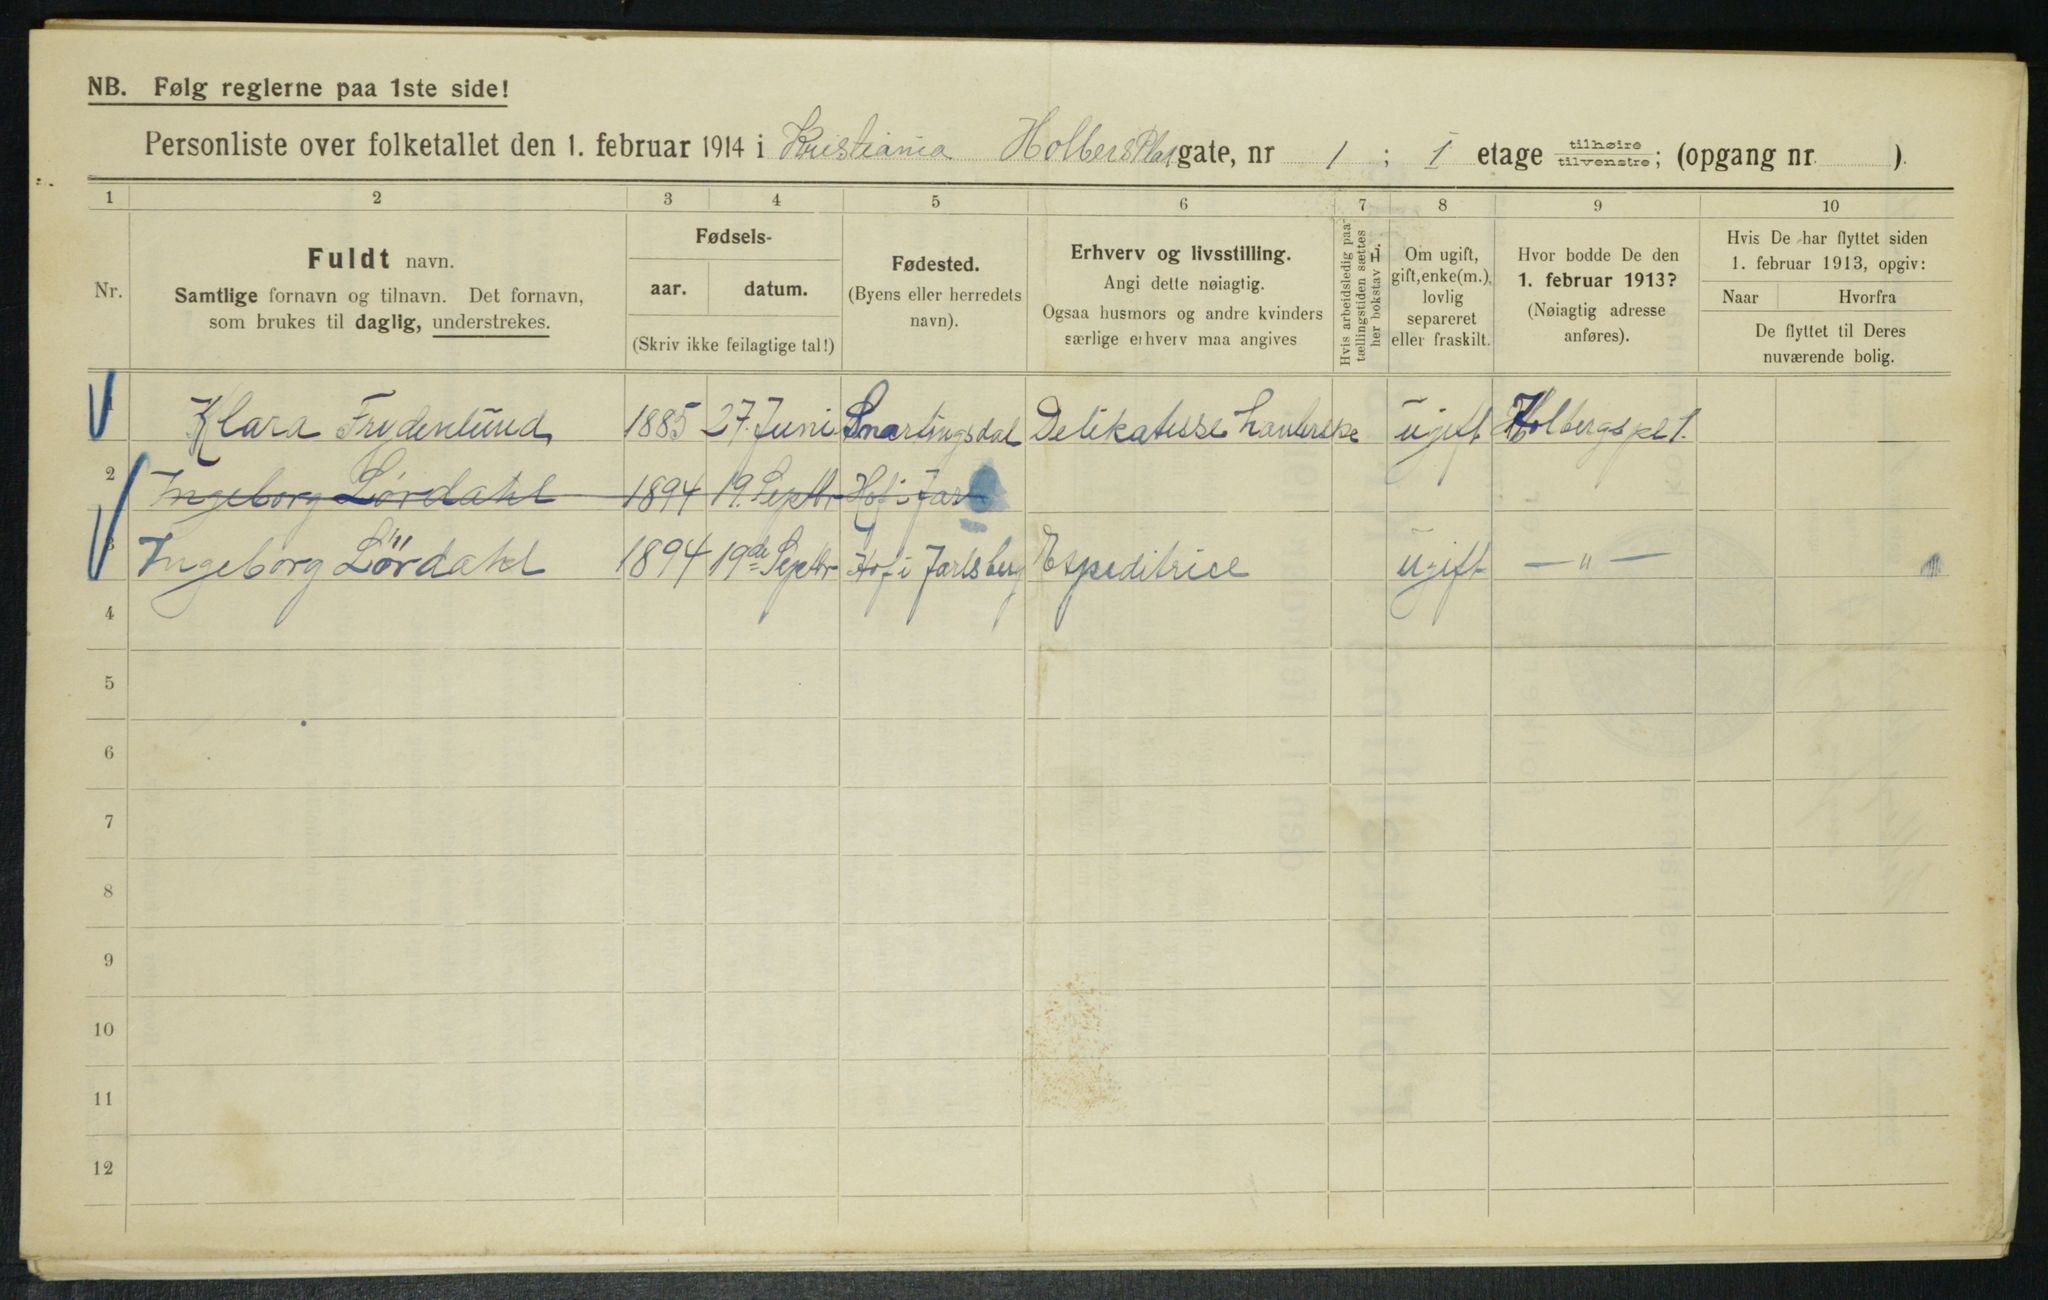 NB. Følg reglerne paa 1ste side!
Personliste over folketallet den 1. februar 1914 i Kristiania Holbers Plas gate, nr 1 ; I etage tilhøire tilvenstre; (opgang nr. ).
1 2 3 4 5 6 7 8 9 10
Nr.
Fuldt navn.
Samtlige fornavn og tilnavn. Det fornavn,
som brukes til daglig, understrekes.
Fødsels-
aar. datum.
(Skriv ikke feilagtige tal!)
Fødested.
(Byens eller herredets
navn).
Erhverv og livsstilling.
Angi dette nøiagtig.
Ogsaa husmors og andre kvinders
særlige erhverv maa angives
Hvis arbeidsledig paa
tællingstiden sættes
her bokstav L.
Om ugift,
gift, enke(m.),
lovlig
separeret
eller fraskilt.
Hvor bodde De den
1. februar 1913?
(Nøiagtig adresse
anføres).
Hvis De har flyttet siden
1. februar 1913, opgiv:
Naar Hvorfra
De flyttet til Deres
nuværende bolig.
1 Klara Frydenlund, 1885 27. Juni Snartingsdal Delikatesse ugift Holbergspl 1.
2 Ingeborg Lørdahl 1894 19. Septbr Hof i Jar
3 Ingeborg Lørdahl 1894 19de Septbr Hof i Jarlsberg Expeditrice ugift — " —
4
5
6
7
8
9
10
11
12